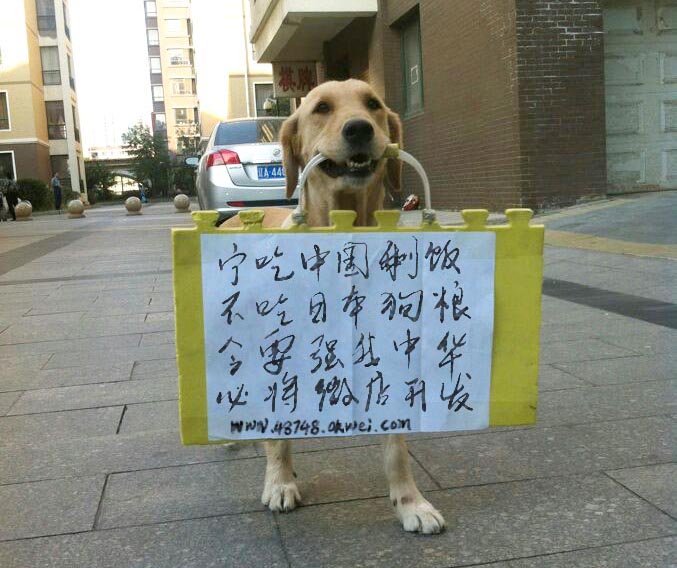 棋牌
宁吃中国剩饭
不吃日本狗粮
今要强我中华
必将微店开发
www.48748.okwei.com